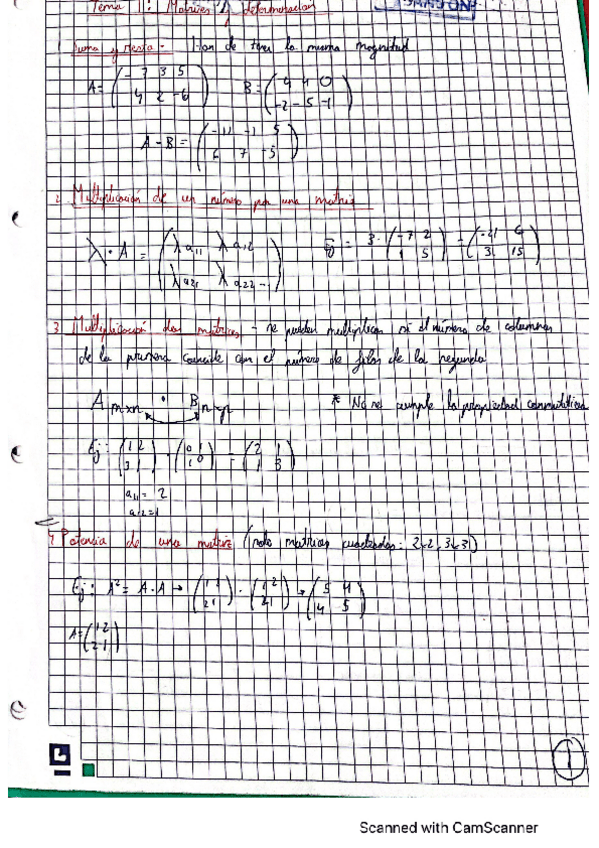 Tema 1: Matrices y determinantes
1 Suma y resta - Han de tener la misma magnitud
A = ( -7 3 5 / 4 2 -6 ) B = ( 4 4 0 / -2 -5 -1 )
A - B = ( -11 -1 5 / 6 7 -5 )
2 Multiplicación de un número por una matriz
λ · A = ( λ a11 λ a12 / λ a21 λ a22 ) Ej = 3 · ( -7 2 / 1 5 ) = ( -21 6 / 3 15 )
3 Multiplicación dos matrices - se pueden multiplicar si el número de columnas
de la primera coincide con el número de filas de la segunda
A mxn · B nxp * No se cumple la propiedad conmutativa
Ej: ( 1 2 / 3 1 ) · ( 0 1 / 1 0 ) = ( 2 1 / 1 3 )
a11 = 2
a12 = 1
4 Potencia de una matriz (solo matrices cuadradas: 2x2, 3x3)
Ej: A² = A · A → ( 1 2 / 2 1 ) · ( 1 2 / 2 1 ) → ( 5 4 / 4 5 )
A = ( 1 2 / 2 1 )
1
Scanned with CamScanner